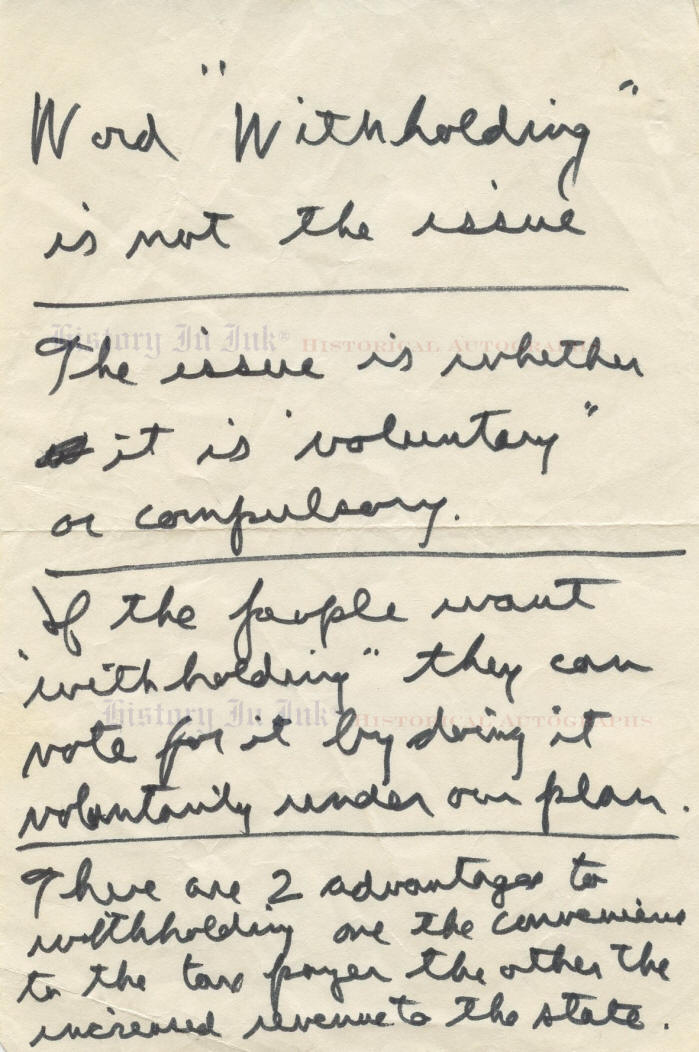 Word "Withholding"
is not the issue
History In Ink® Historical Autographs
The issue is whether
it is "voluntary"
or compulsory.
If the people want
"withholding" they can
History In Ink® Historical Autographs
vote for it by doing it
voluntarily under our plan.
There are 2 advantages to
withholding one the convenience
to the tax payer the other the
increased revenue to the state.